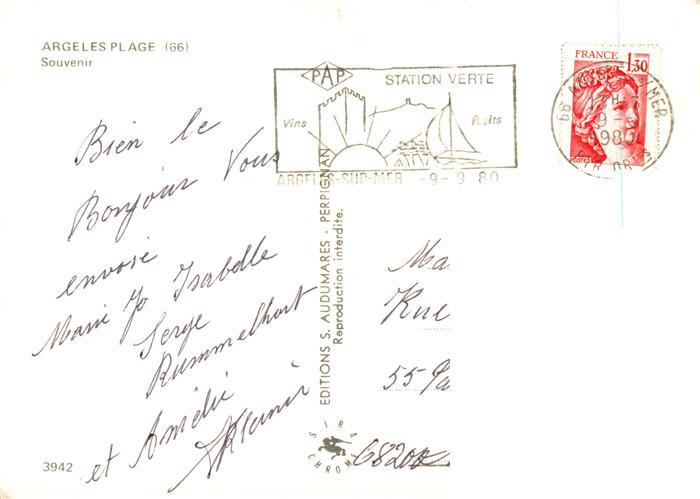 ARGELES PLAGE (66)
Souvenir
PAP
STATION VERTE
Vins
Fruits
ARGELES-SUR-MER -9-9 80
FRANCE
1,30
POSTES
17H
9-9
1980
PYR. OR.
Bien le
Bonjour Vous
envoie
Marie Jo Isabelle
Serge
Rummelhart
et Amélie
EDITIONS S. AUDUMARES - PERPIGNAN
Reproduction interdite.
Ma
Rue
55 Pa
68200
SIRA
CHROME
3942